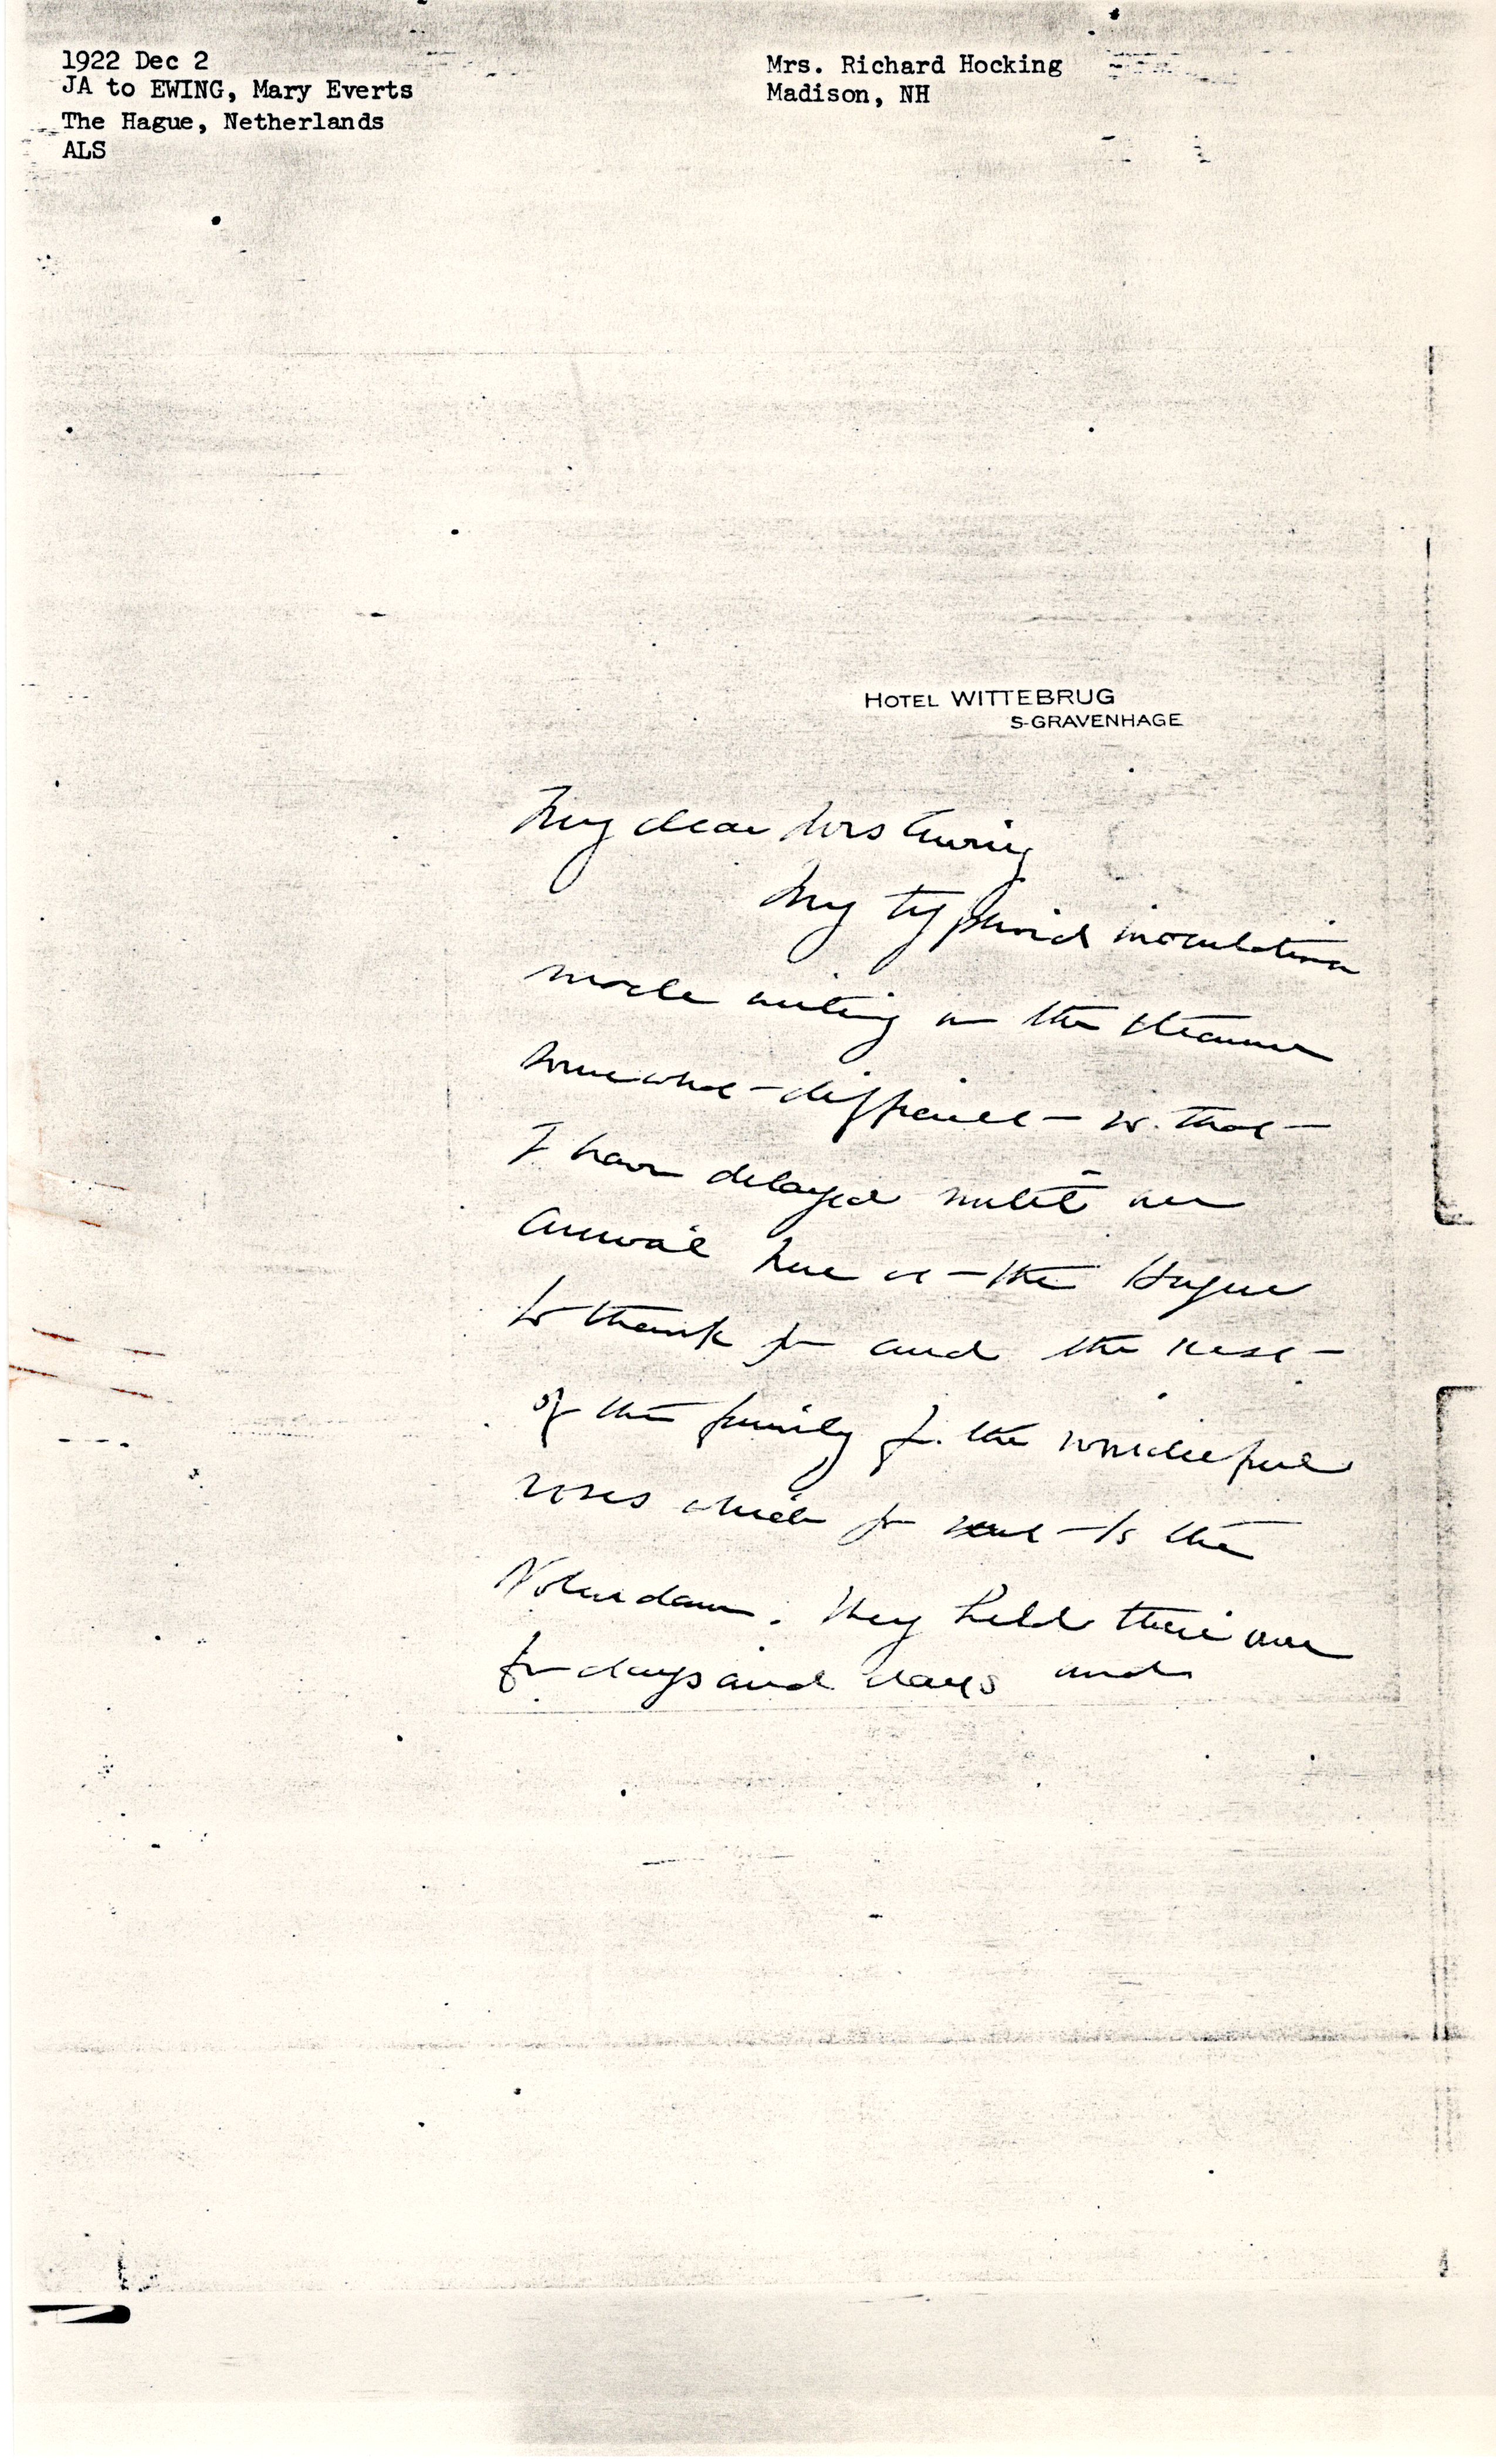 1922 Dec 2
JA to EWING, Mary Everts
The Hague, Netherlands
ALS
Mrs. Richard Hocking
Madison, NH
HOTEL WITTEBRUG
S-GRAVENHAGE
My dear Mrs Ewing
My typhoid inoculation
made writing on the steamer
somewhat difficult so that
I have delayed until our
arrival here at the Hague
to thank you and the rest
of the family for the wonderful
roses which you sent to the
Volendam. They held their own
for days and days and